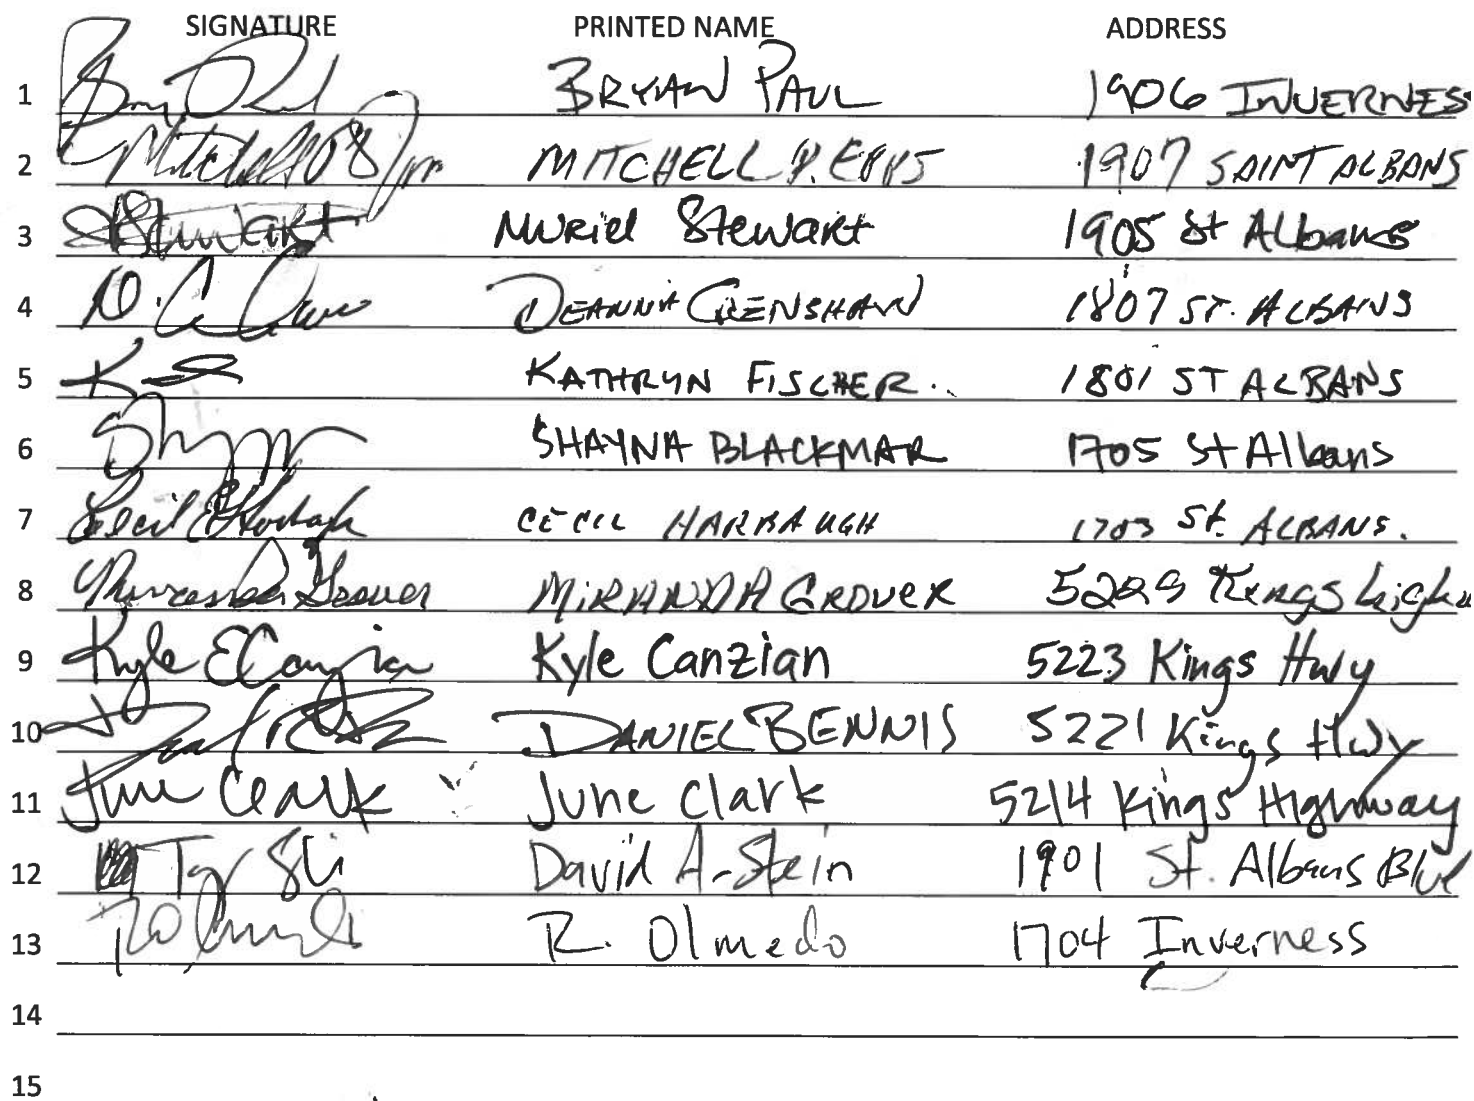 SIGNATURE PRINTED NAME ADDRESS
1 BRYAN PAUL 1906 INVERNESS
2 MITCHELL P. EPPS 1907 SAINT ALBANS
3 Stewart Muriel Stewart 1905 St Albans
4 DEANNA CRENSHAW 1807 ST. ALBANS
5 KATHRYN FISCHER. 1801 ST ALBANS
6 SHAYNA BLACKMAR 1705 St Albans
7 Cecil CECIL HARBAUGH 1703 St. ALBANS.
8 Miranda Grover MIRANDA GROVER Kings
9 Kyle E Canzian Kyle Canzian 5223 Kings Hwy
10 DANIEL BENNIS 5221 Kings Hwy
11 June Clark June Clark 5214 Kings Highway
12 David A. Stein 1901 St. Albans Blvd
13 R. Olmedo 1704 Inverness
14
15